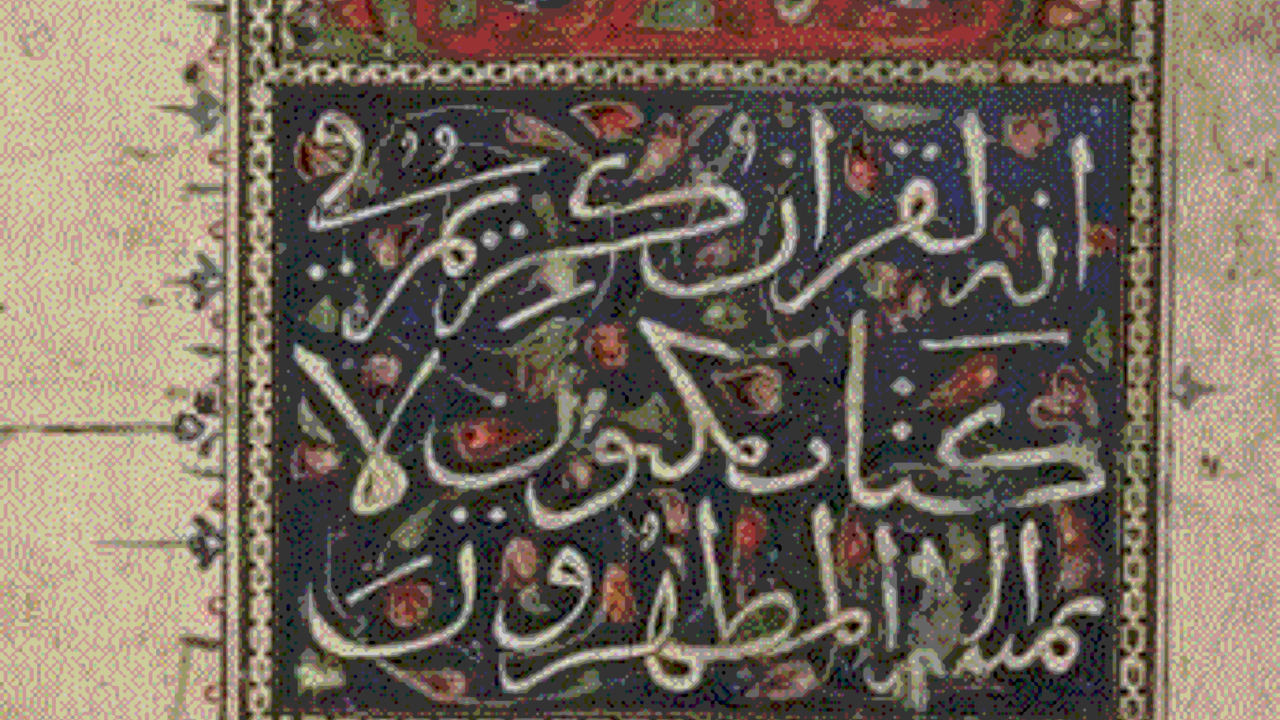 انه لقرآن كريم في
كتاب مكنون لا
يمسه الا المطهرون